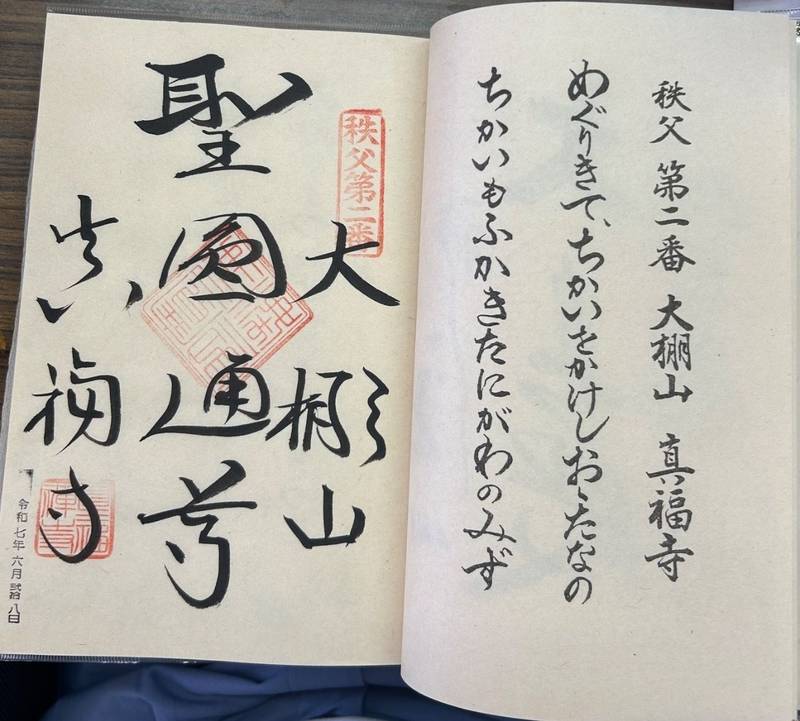 秩父 第二番 大棚山 真福寺
めぐりきて、ちかいをかけしおゝたなの
ちかいもふかきたにがわのみず
秩父第二番
大棚山
聖圓通尊
真福寺
令和七年六月弐拾八日